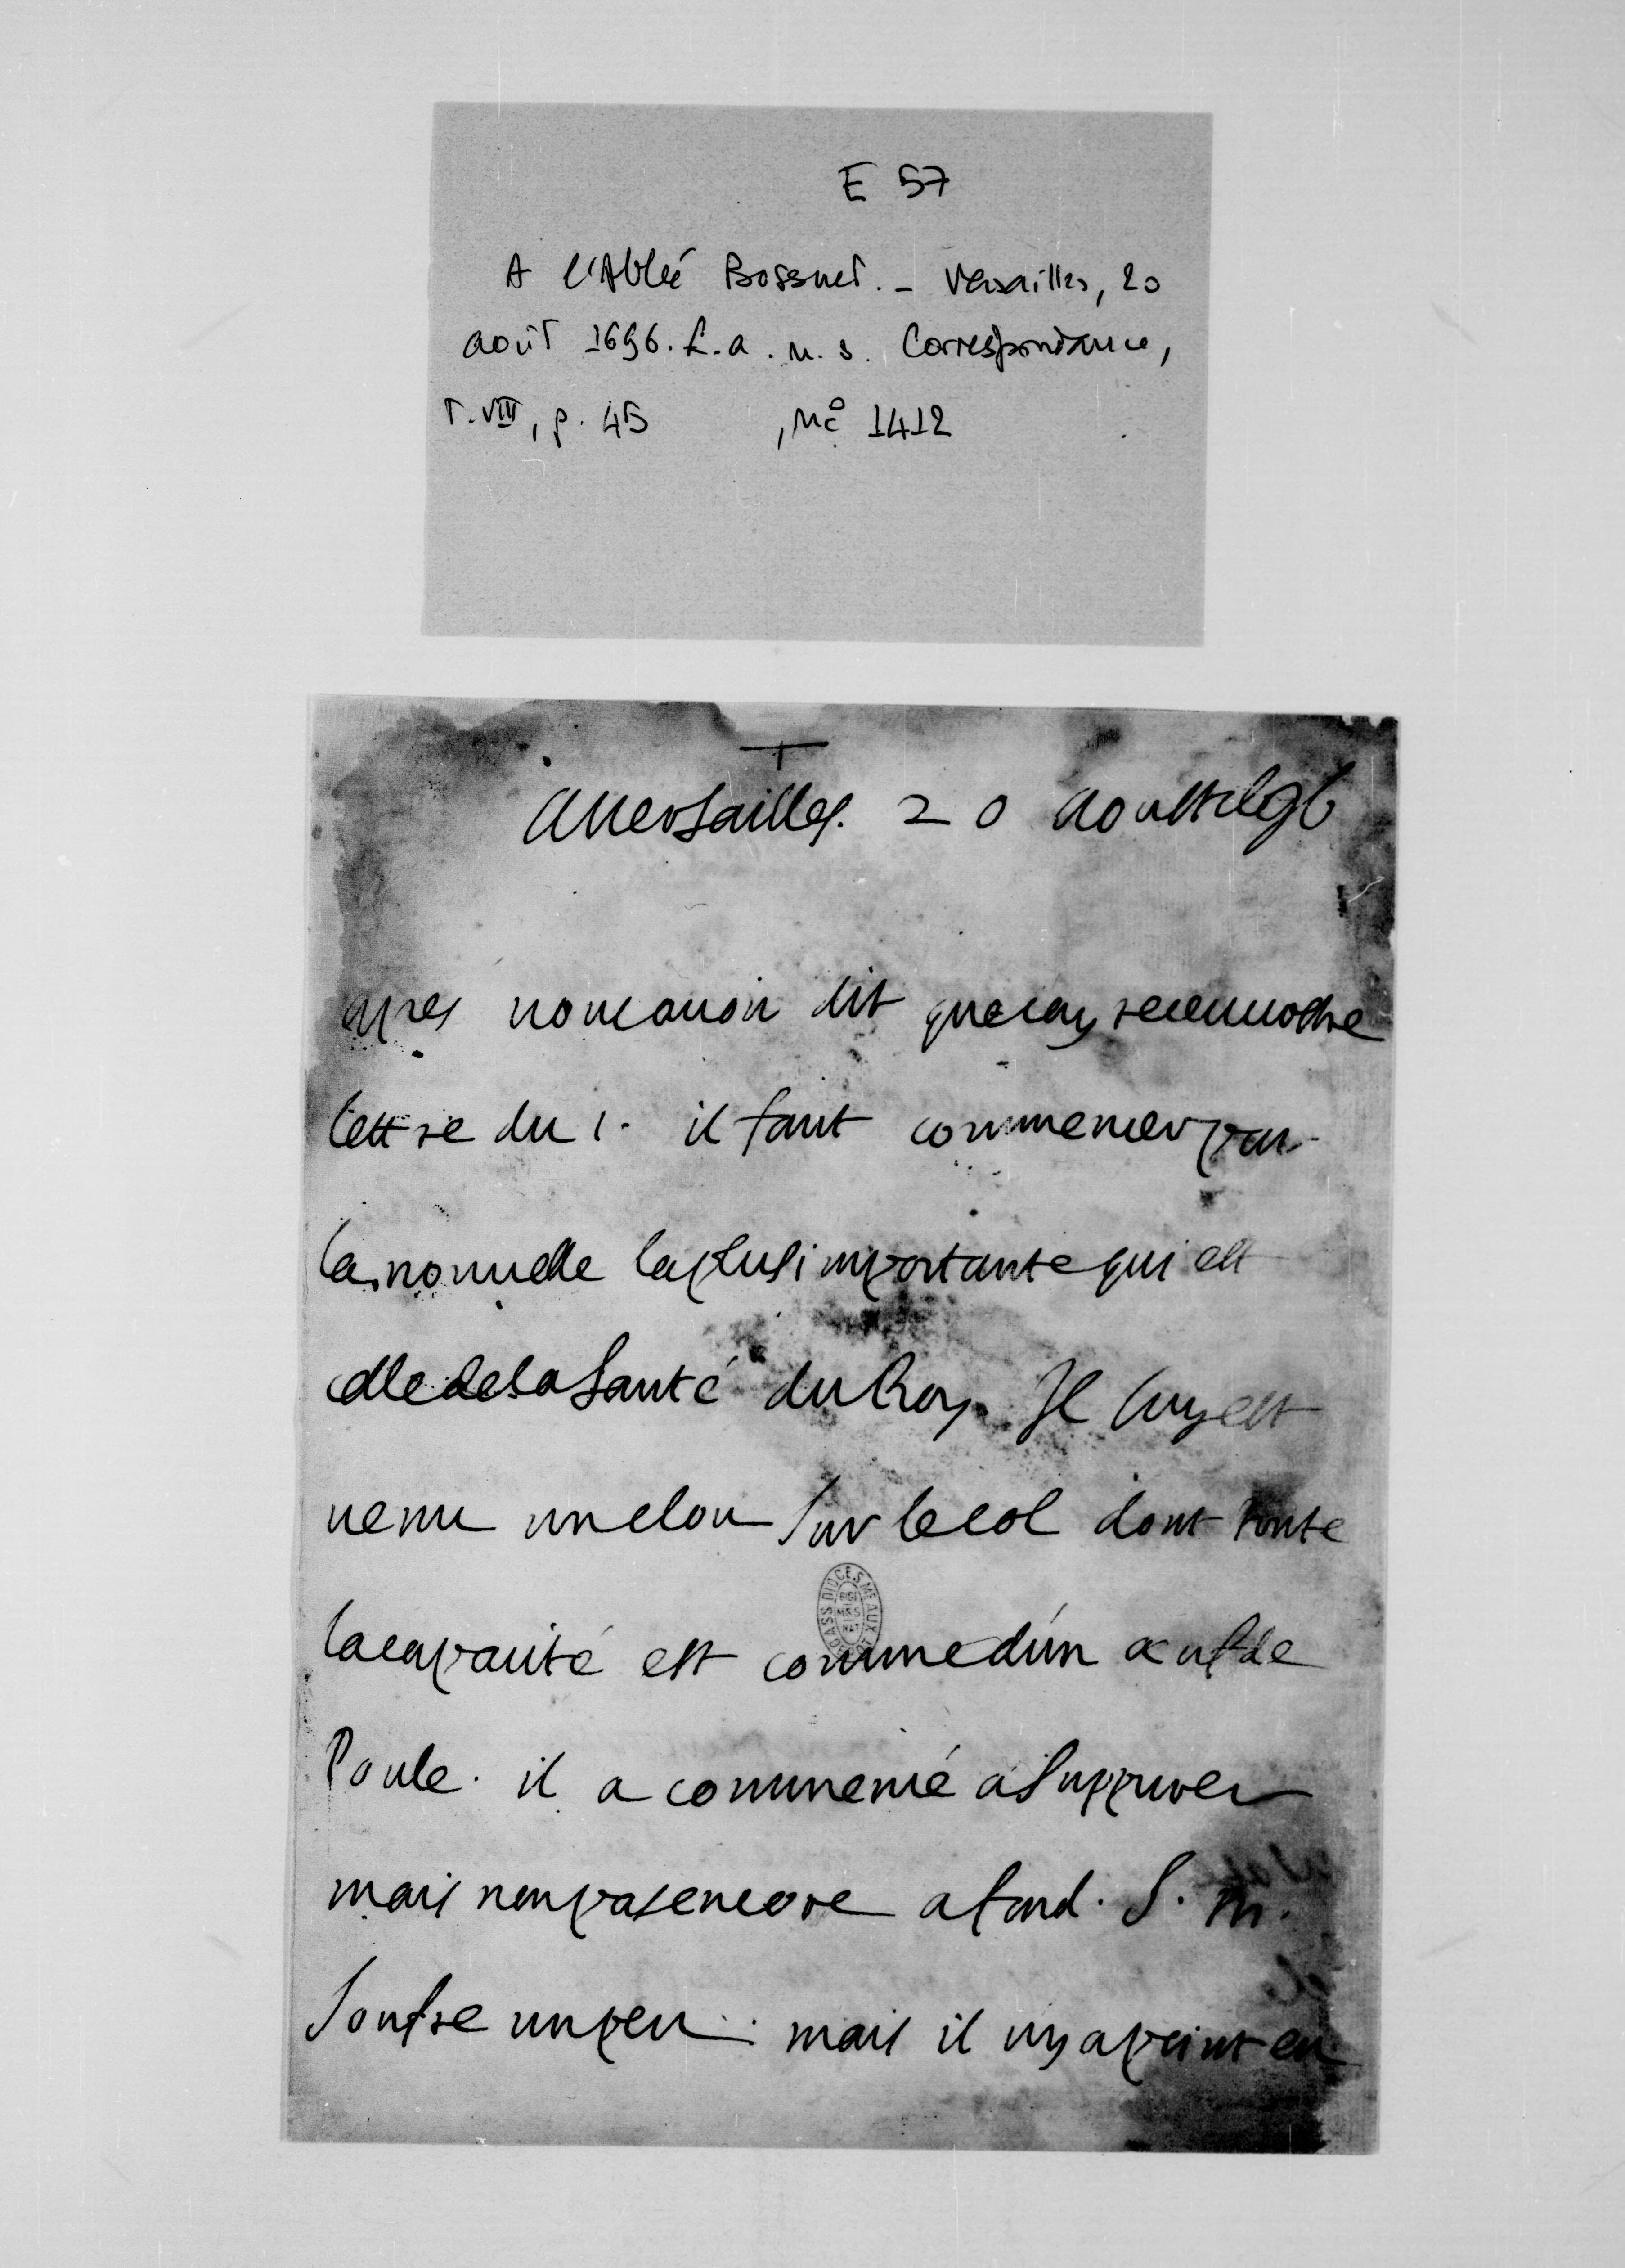 E 57
A l'Abbé Bossuet. - Versailles, 20
août 1696. L. a. n. s. Correspondance,
T. VIII, p. 45 , Nº 1412
A Versailles. 20 Aoust 1696
apres vous auoir dit que iay receu vostre
lettre du 1. il faut commencer par
la nouuelle la plus importante qui est
celle de la Santé du Roy. Il luy est
uenu un clou Sur le col dont toute
la capacité est comme d'un œuf de
Poule. il a commencé a Suppurer
mais non pas encore a fond. S. M.
Soufre un peu : mais il ny a point eu
BIBL MSS NAT